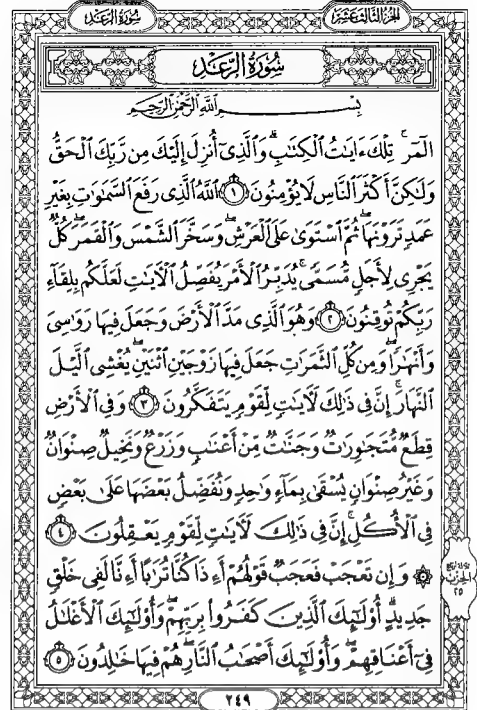 الجزء الثالث عشر
سورة الرعد
سُورَةُ الرَّعْدِ
بِسْمِ اللَّهِ الرَّحْمَٰنِ الرَّحِيمِ
الٓمٓر ۚ تِلْكَ ءَايَٰتُ ٱلْكِتَٰبِ ۗ وَٱلَّذِىٓ أُنزِلَ إِلَيْكَ مِن رَّبِّكَ ٱلْحَقُّ
وَلَٰكِنَّ أَكْثَرَ ٱلنَّاسِ لَا يُؤْمِنُونَ ١ ٱللَّهُ ٱلَّذِى رَفَعَ ٱلسَّمَٰوَٰتِ بِغَيْرِ
عَمَدٍ تَرَوْنَهَا ۖ ثُمَّ ٱسْتَوَىٰ عَلَى ٱلْعَرْشِ ۖ وَسَخَّرَ ٱلشَّمْسَ وَٱلْقَمَرَ ۖ كُلٌّ
يَجْرِى لِأَجَلٍ مُّسَمًّى ۚ يُدَبِّرُ ٱلْأَمْرَ يُفَصِّلُ ٱلْءَايَٰتِ لَعَلَّكُم بِلِقَآءِ
رَبِّكُمْ تُوقِنُونَ ٢ وَهُوَ ٱلَّذِى مَدَّ ٱلْأَرْضَ وَجَعَلَ فِيهَا رَوَٰسِىَ
وَأَنْهَٰرًا ۖ وَمِن كُلِّ ٱلثَّمَرَٰتِ جَعَلَ فِيهَا زَوْجَيْنِ ٱثْنَيْنِ ۖ يُغْشِى ٱلَّيْلَ
ٱلنَّهَارَ ۚ إِنَّ فِى ذَٰلِكَ لَءَايَٰتٍ لِّقَوْمٍ يَتَفَكَّرُونَ ٣ وَفِى ٱلْأَرْضِ
قِطَعٌ مُّتَجَٰوِرَٰتٌ وَجَنَّٰتٌ مِّنْ أَعْنَٰبٍ وَزَرْعٌ وَنَخِيلٌ صِنْوَانٌ
وَغَيْرُ صِنْوَانٍ يُسْقَىٰ بِمَآءٍ وَٰحِدٍ وَنُفَضِّلُ بَعْضَهَا عَلَىٰ بَعْضٍ
فِى ٱلْأُكُلِ ۚ إِنَّ فِى ذَٰلِكَ لَءَايَٰتٍ لِّقَوْمٍ يَعْقِلُونَ ٤
۞ وَإِن تَعْجَبْ فَعَجَبٌ قَوْلُهُمْ أَءِذَا كُنَّا تُرَٰبًا أَءِنَّا لَفِى خَلْقٍ
جَدِيدٍ ۗ أُو۟لَٰٓئِكَ ٱلَّذِينَ كَفَرُوا۟ بِرَبِّهِمْ ۖ وَأُو۟لَٰٓئِكَ ٱلْأَغْلَٰلُ
فِىٓ أَعْنَاقِهِمْ ۖ وَأُو۟لَٰٓئِكَ أَصْحَٰبُ ٱلنَّارِ ۖ هُمْ فِيهَا خَٰلِدُونَ ٥
الحزب
٢٥
٢٤٩